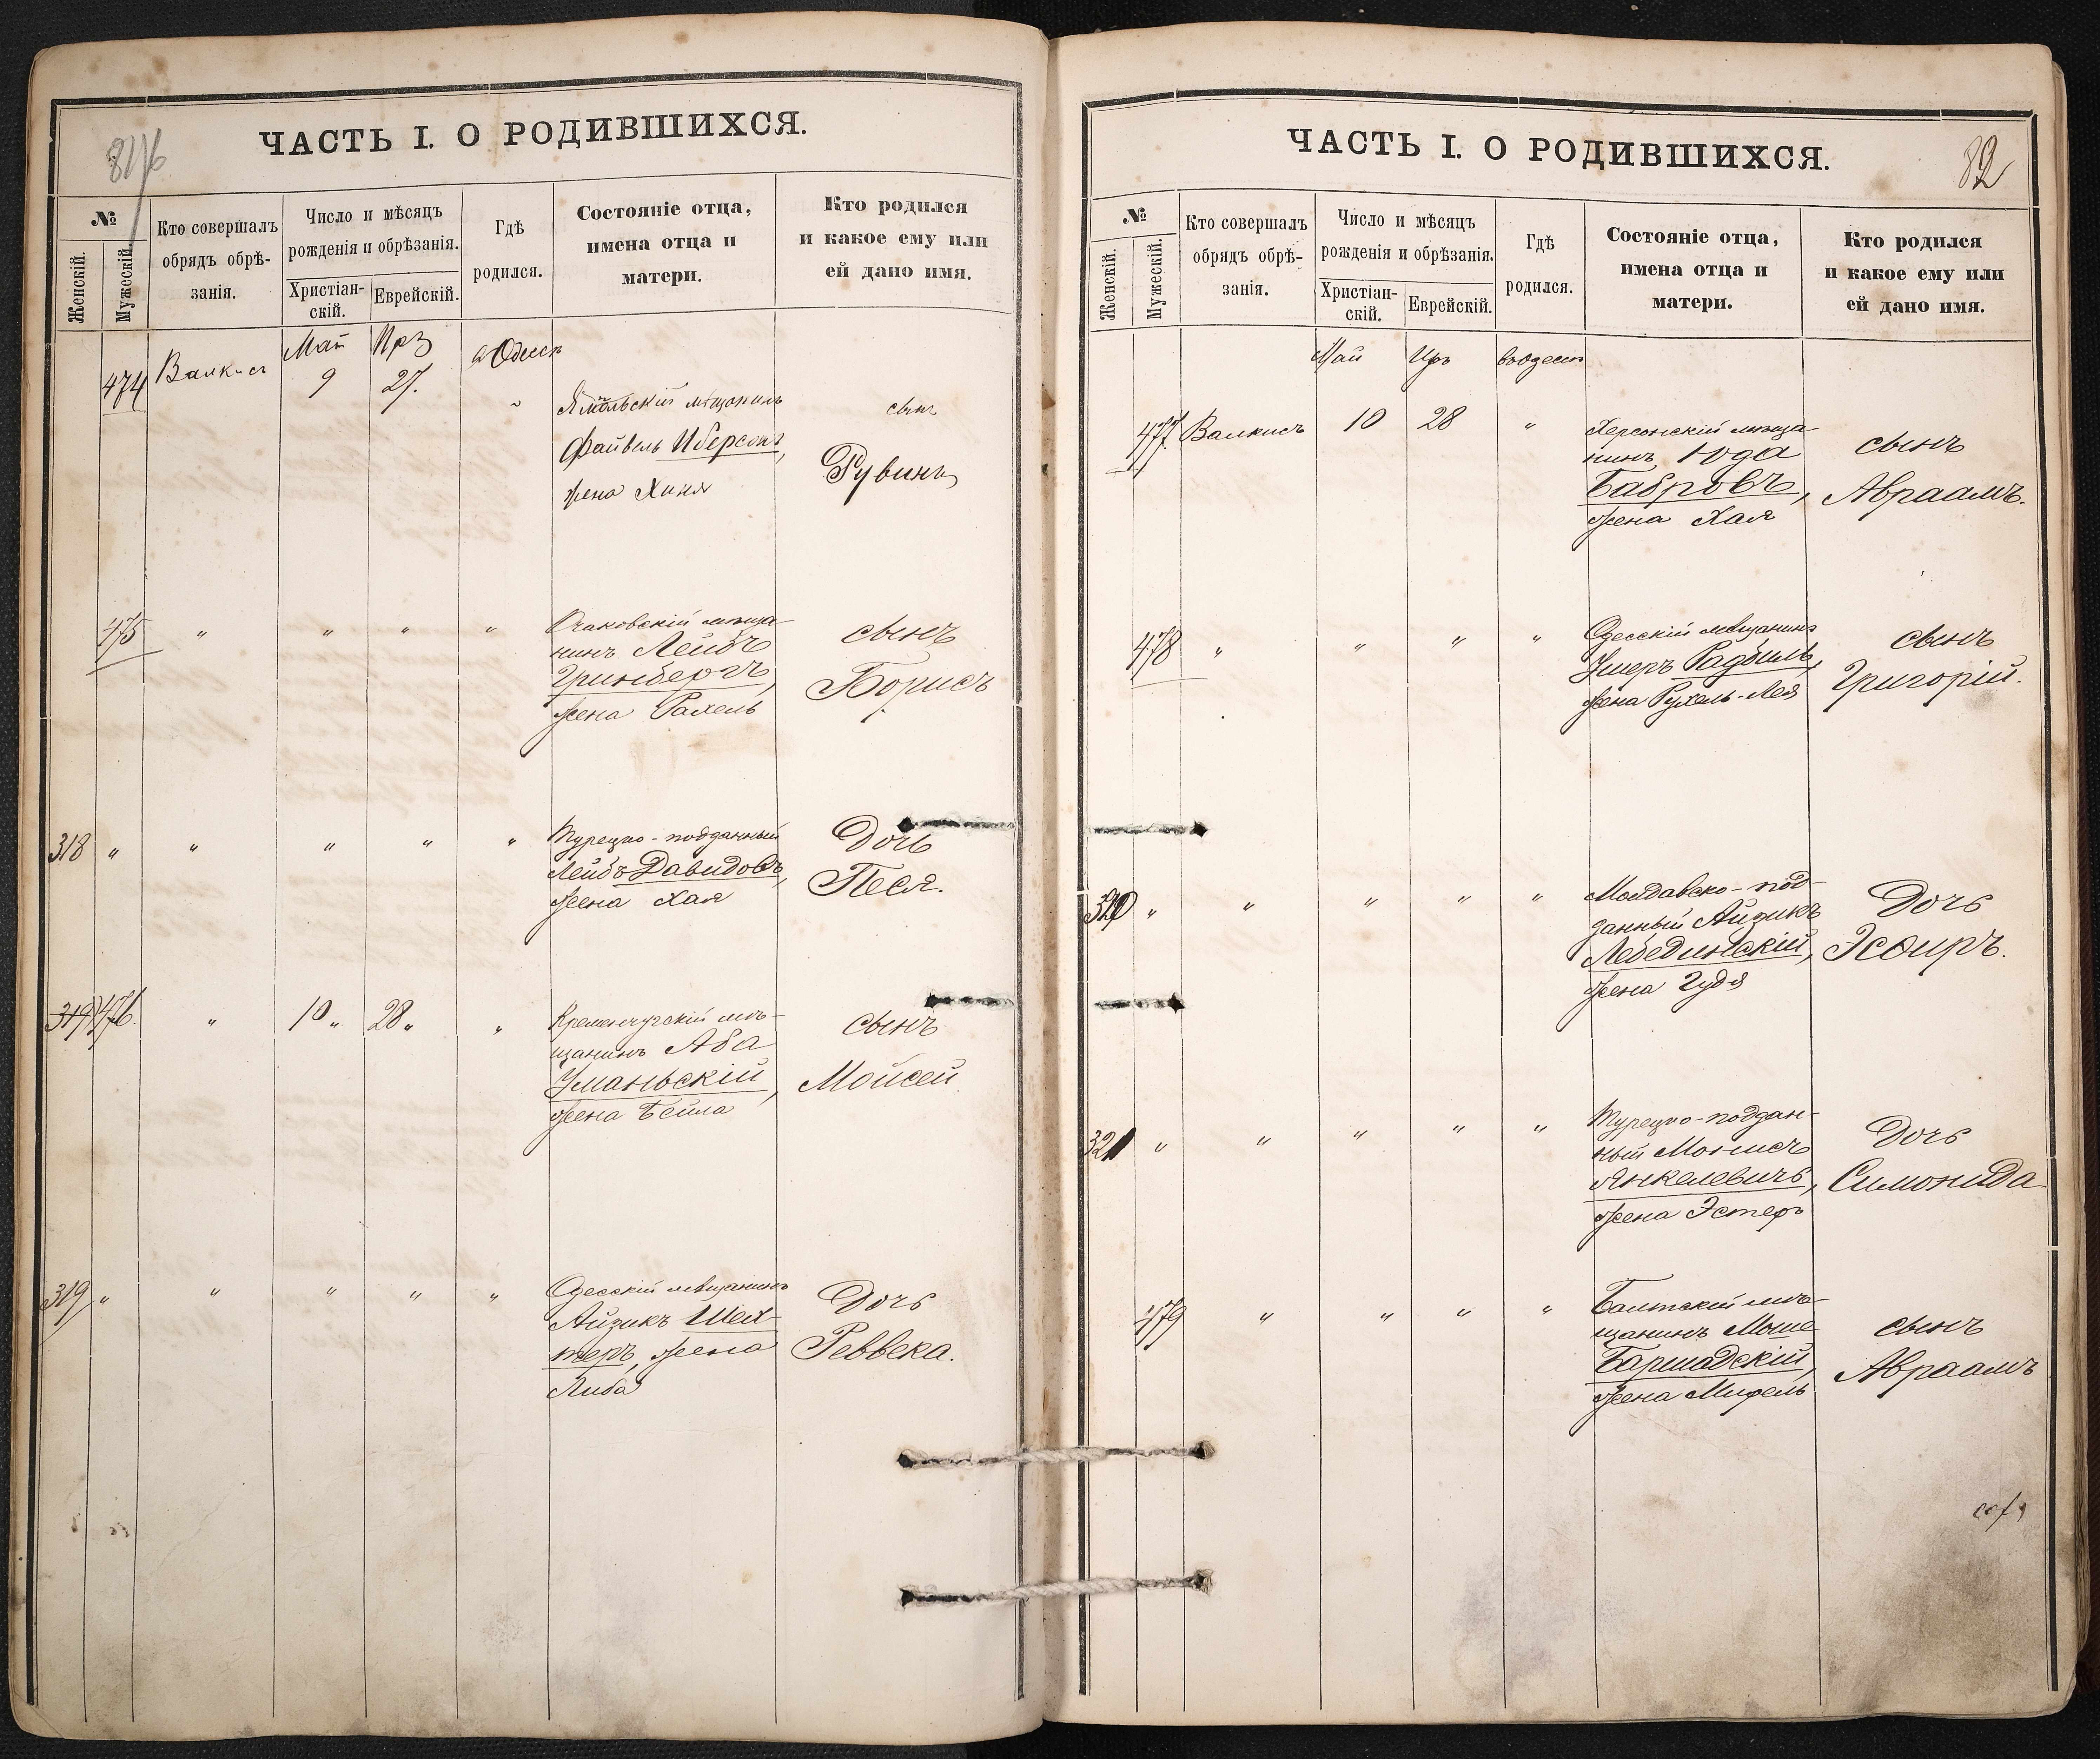 ЧАСТЬ I. О РОДИВШИХСЯ.
№
Женскій.
Мужескій.
Кто совершалъ
обрядъ обрѣ-
занія.
Число и мѣсяцъ
рожденія и обрѣзанія.
Христіан-
скій.
Еврейскій.
Гдѣ
родился.
Состояніе отца,
имена отца и
матери.
Кто родился
и какое ему или
ей дано имя.
Май
474 Валкисъ 9 27.
мѣщанинъ
Файвель Иберсонъ,
жена Хиня
сынъ
Рувинъ
475 " " " "
Очаковскій мѣща-
нинъ Лейбъ
Гринбергъ,
жена Рахель
сынъ
Борисъ
318 " " " " "
Турецко-подданный
Лейбъ Давидовъ,
жена Хая
Дочь
Песя.
319 476. " 10 " 28 " "
Кременчугскій мѣ-
щанинъ Аба
Уманьскій,
жена Бейла
сынъ
Мойсей
319 " " " " "
Одесскій мѣщанинъ
Айзикъ Шех-
теръ, жена
Либа
Дочь
Реввека.
ЧАСТЬ I. О РОДИВШИХСЯ.
82
№
Женскій.
Мужескій.
Кто совершалъ
обрядъ обрѣ-
занія.
Число и мѣсяцъ
рожденія и обрѣзанія.
Христіан-
скій.
Еврейскій.
Гдѣ
родился.
Состояніе отца,
имена отца и
матери.
Кто родился
и какое ему или
ей дано имя.
Май Иръ
477 Валкисъ 10 28 "
Херсонскій мѣща-
нинъ Юда
Бабровъ,
жена Хая
сынъ
Авраамъ.
478 " " " "
Одесскій мѣщанинъ
Ушеръ Радбиль,
жена Рухель-Лея
сынъ
Григорій.
320 " " " " "
Молдавско-под-
данный Айзикъ
Лебединскій,
жена Гудя
Дочь
Эсѳирь.
321 " " " " "
Турецко-поддан-
ный
Янкелевичъ,
жена Эстеръ
Дочь
Симонида
479 " " " "
Балтскій мѣ-
щанинъ Моше
Баршадскій,
жена
сынъ
Авраамъ